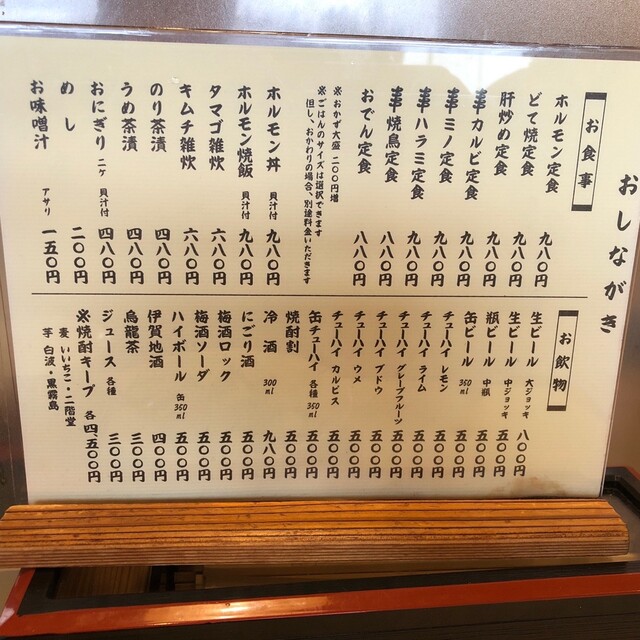 おしながき
お食事
ホルモン定食 九八〇円
どて焼定食 九八〇円
肝炒め定食 九八〇円
串カルビ定食 九八〇円
串ミノ定食 九八〇円
串ハラミ定食 九八〇円
串焼鳥定食 八八〇円
おでん定食 八八〇円
※おかず大盛 二〇〇円増
※ごはんのサイズは選択できます
但し、おかわりの場合、別途料金いただきます
ホルモン丼 貝汁付 九八〇円
ホルモン焼飯 貝汁付 九八〇円
タマゴ雑炊 六八〇円
キムチ雑炊 六八〇円
のり茶漬 四八〇円
うめ茶漬 四八〇円
おにぎり ニケ 貝汁付 四八〇円
めし 二〇〇円
お味噌汁 アサリ 一五〇円
お飲物
生ビール 大ジョッキ 八〇〇円
生ビール 中ジョッキ 五〇〇円
瓶ビール 中瓶 五〇〇円
缶ビール 350ml 五〇〇円
チューハイ レモン 五〇〇円
チューハイ ライム 五〇〇円
チューハイ グレープフルーツ 五〇〇円
チューハイ ブドウ 五〇〇円
チューハイ ウメ 五〇〇円
チューハイ カルピス 五〇〇円
缶チューハイ 各種 350ml 五〇〇円
焼酎割 五〇〇円
冷酒 300ml 九八〇円
にごり酒 五〇〇円
梅酒ロック 五〇〇円
梅酒ソーダ 五〇〇円
ハイボール 缶 350ml 五〇〇円
伊賀地酒 四〇〇円
烏龍茶 三〇〇円
ジュース 各種 三〇〇円
※焼酎キープ 各四、五〇〇円
麦 いいちこ・二階堂
芋 白波・黒霧島